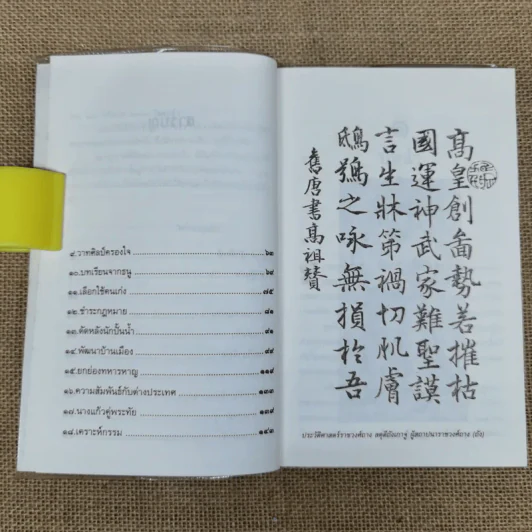 ๙.วาทศิลป์ครองใจ
๑๐.บทเรียนจากธนู
๑๑.เลือกใช้คนเก่ง ๗๕
๑๒.ชำระกฎหมาย ๘๑
๑๓.ตัดหลังนักปั้นน้ำ
๑๔.พัฒนาบ้านเมือง ๙๙
๑๕.ยกย่องทหารหาญ
๑๖.ความสัมพันธ์กับต่างประเทศ
๑๗.นางแก้วคู่พระทัย
๑๘.เคราะห์กรรม ๑๔๓
髙皇創啚勢若摧枯
國運神武家難聖謨
言生牀第禍切肌膚
鴟鴞之咏無損於吾
舊唐書髙祖贊
ประวัติศาสตร์ราชวงศ์ถาง สดุดีถังเกาจู่ ผู้สถาปนาราชวงศ์ถาง (ถัง)